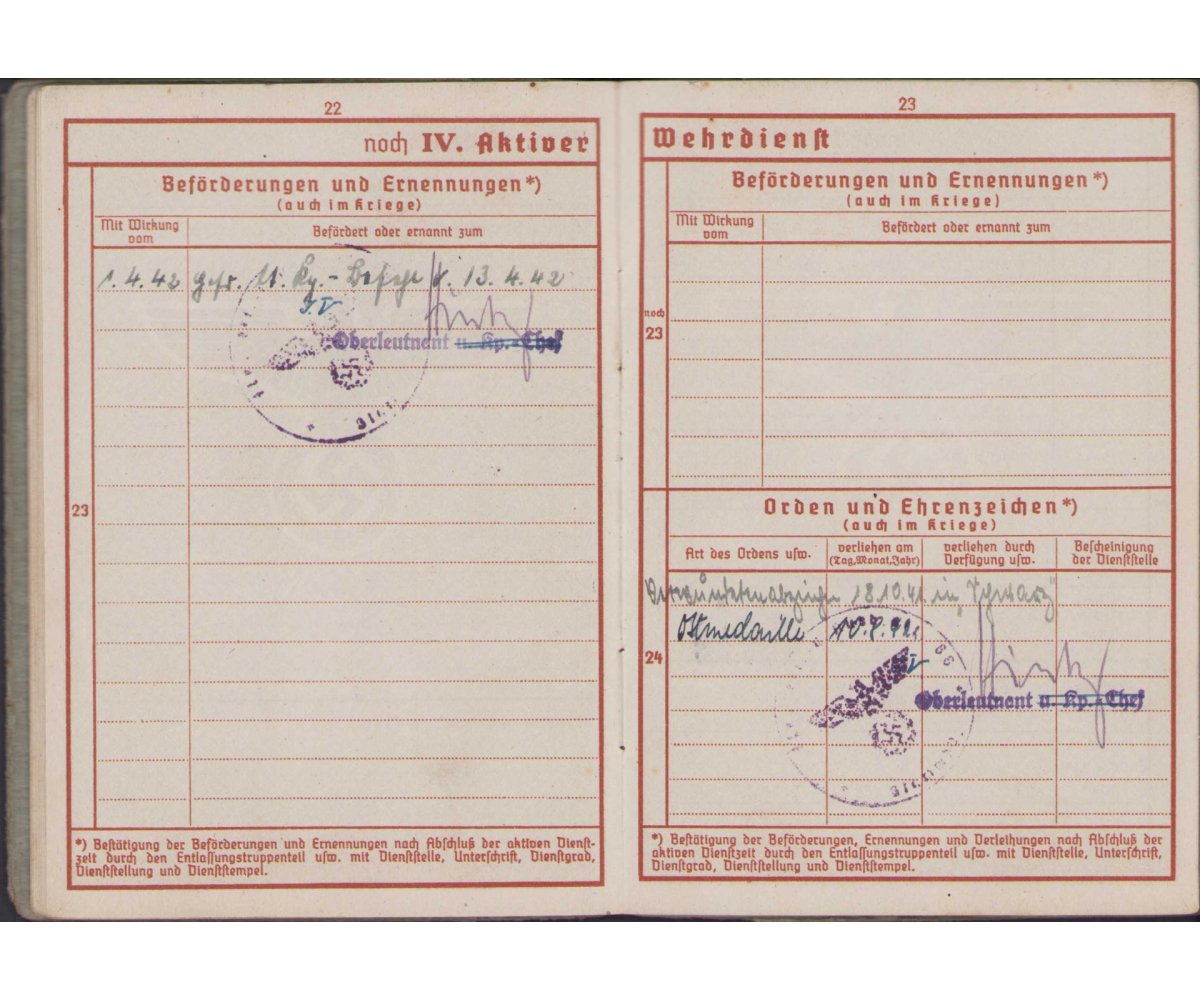 22
noch IV. Aktiver
Beförderungen und Ernennungen*)
(auch im Kriege)
Mit Wirkung vom
Befördert oder ernannt zum
1.4.42 Gefr. lt. Kp.-Befehl v. 13.4.42
I.V
Oberleutnant u. Kp.-Chef
23
*) Bestätigung der Beförderungen und Ernennungen nach Abschluß der aktiven Dienst-
zeit durch den Entlassungstruppenteil usw. mit Dienststelle, Unterschrift, Dienstgrad,
Dienststellung und Dienststempel.
23
Wehrdienst
Beförderungen und Ernennungen*)
(auch im Kriege)
Mit Wirkung vom
Befördert oder ernannt zum
noch
23
Orden und Ehrenzeichen*)
(auch im Kriege)
Art des Ordens usw.
verliehen am
(Tag, Monat, Jahr)
verliehen durch
Verfügung usw.
Bescheinigung
der Dienststelle
Verwundetenabzeichen 18.10.41 in „Schwarz"
Ostmedaille
24
Oberleutnant u. Kp.-Chef
*) Bestätigung der Beförderungen, Ernennungen und Verleihungen nach Abschluß der
aktiven Dienstzeit durch den Entlassungstruppenteil usw. mit Dienststelle, Unterschrift,
Dienstgrad, Dienststellung und Dienststempel.